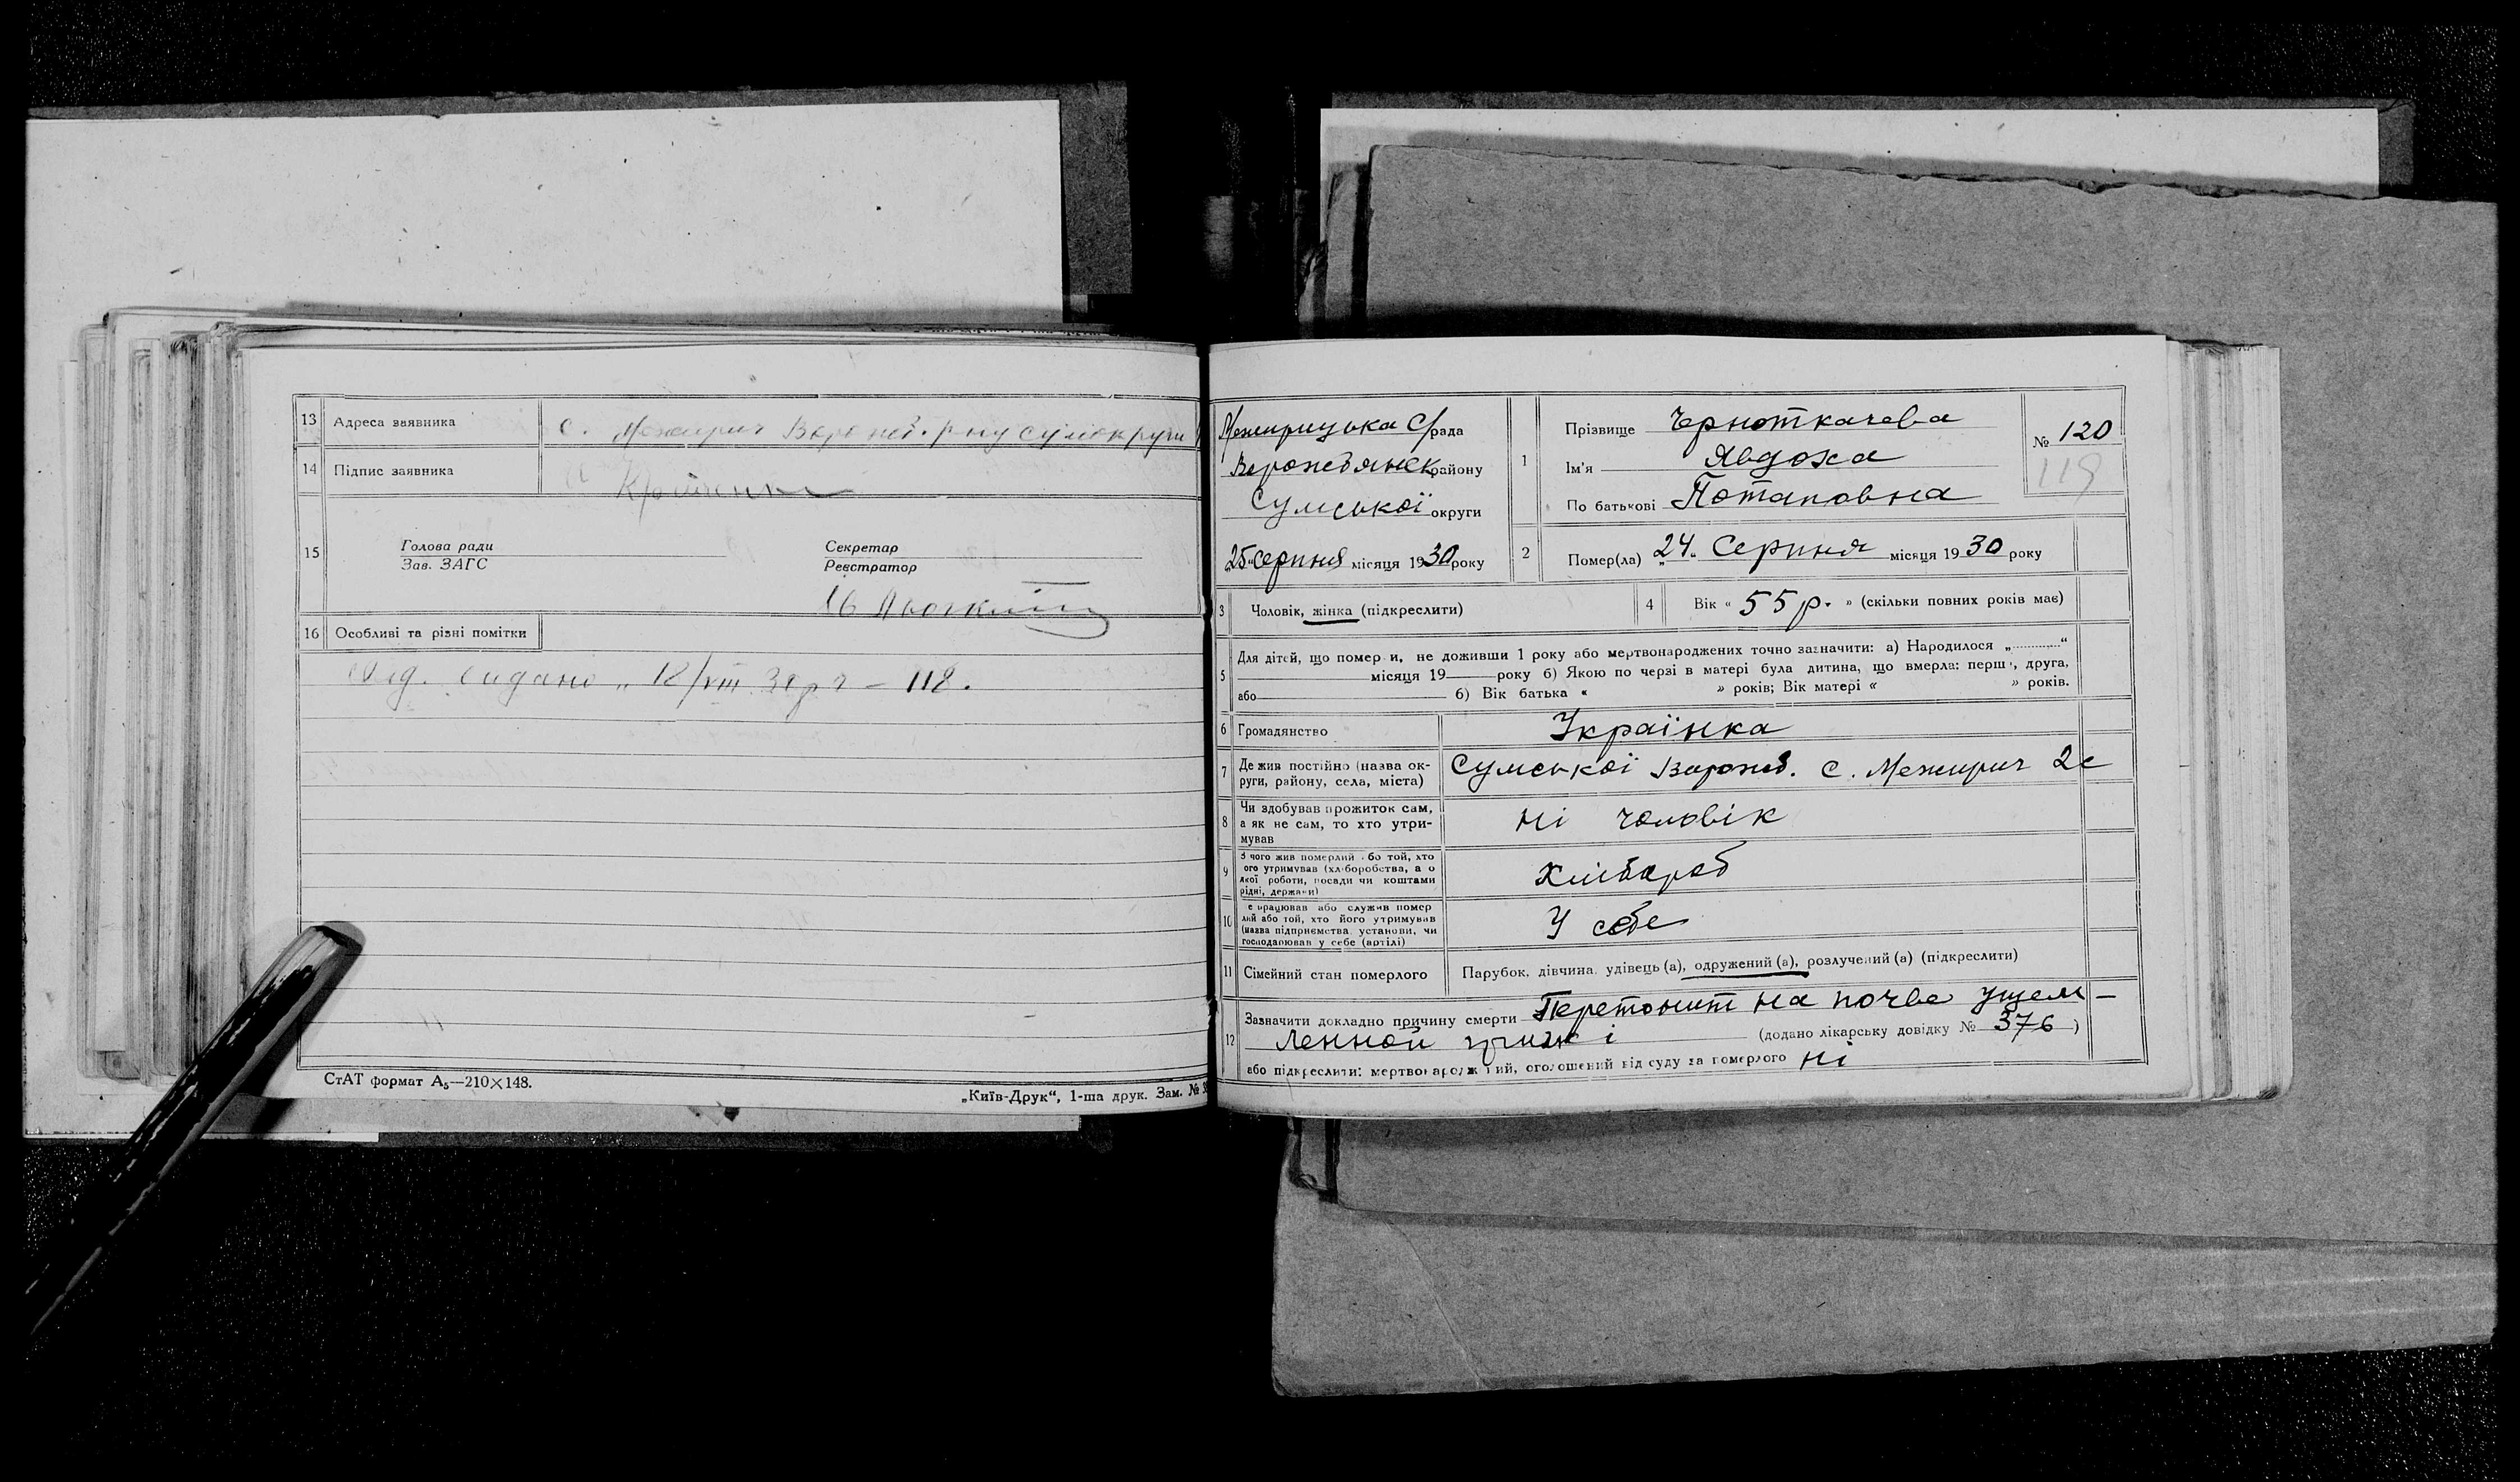 13 Адреса заявника с. Межирич Вороже. р-ну Сумокруги
14 Підпис заявника
15 Голова ради Секретар
Зав. ЗАГС Реєстратор
16 Особливі та різні помітки
видано „ 18/VIII 30 р - 118.
СтАТ формат А₅—210×148.
„Київ-Друк“, 1-ша друк. Зам. №
Межирицька С/рада
Ворожбянськ району
Сумської округи
„25“ серпня місяця 1930 року
1 Прізвище Чорноткачева
Ім'я Явдоха
По батькові Потаповна
№ 120
119
2 Помер(ла) „24„ Серпня місяця 1930 року
3 Чоловік, жінка (підкреслити) 4 Вік « 55 р. » (скільки повних років має)
5 Для дітей, що померли, не доживши 1 року або мертвонароджених точно зазначити: а) Народилося „..........“
місяця 19 року б) Якою по черзі в матері була дитина, що вмерла: перша, друга,
або 6) Вік батька « » років; Вік матері « » років.
6 Громадянство Українка
7 Де жив постійно (назва ок-
руги, району, села, міста) Сумської Ворожб. с. Межирич 2с
8 Чи здобував прожиток сам,
а як не сам, то хто утри-
мував ні чоловік
9 З чого жив померлий або той, хто
його утримував (хліборобства, а о
якої роботи, посади чи коштами
рідні, держави) Хлібороб
10 Де працював або служив помер
лий або той, хто його утримував
(назва підприємства, установи, чи
господарював у себе (артілі) У себе
11 Сімейний стан померлого Парубок, дівчина, удівець (а), одружений (а), розлучений (а) (підкреслити)
12 Зазначити докладно причину смерти Перетонит на почве ущем-
ленной грижі (додано лікарську довідку № 376 )
або підкреслити: мертвонароджений, оголошений від суду за померлого ні